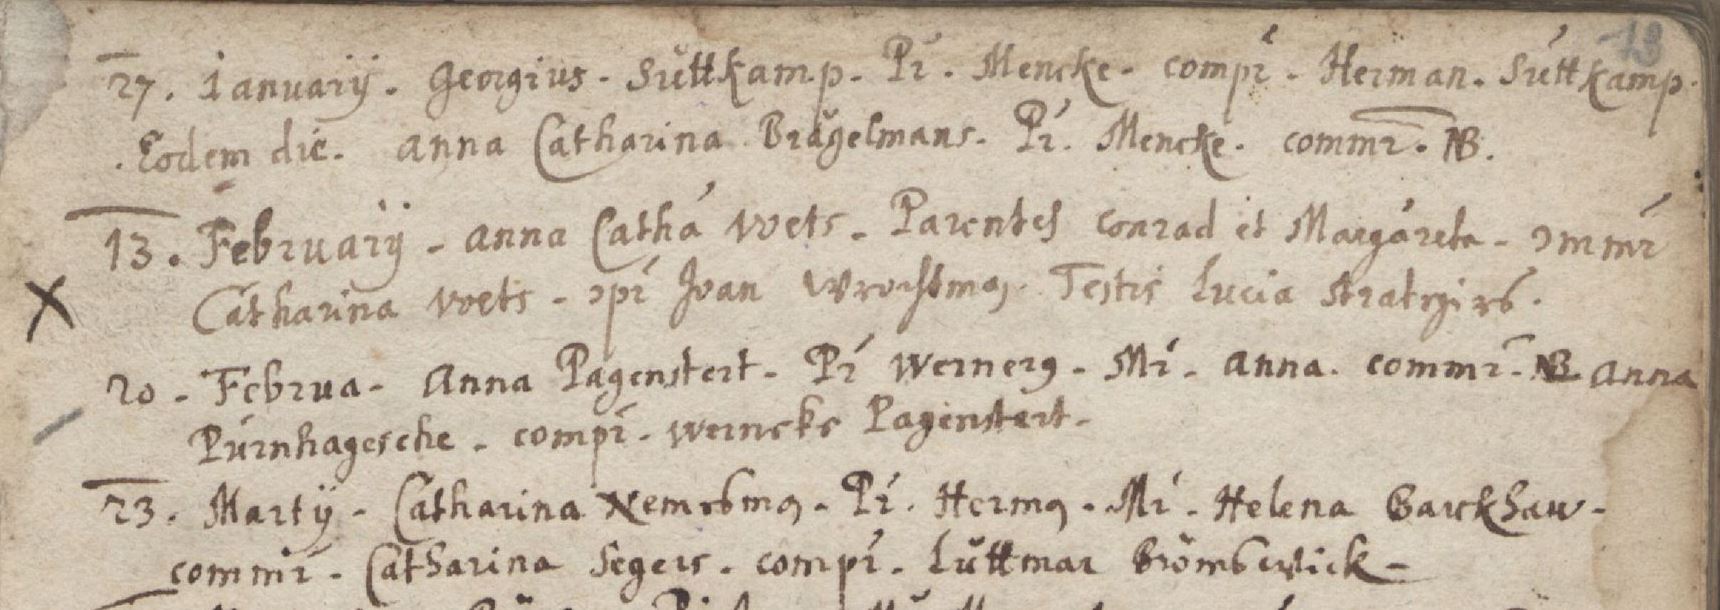 13
27. Ianuarij. Georgius. Suttkamp. Pr. Mencke. compr. Herman. Suttkamp.
Eodem die. Anna Catharina Bragelmans. Pr. Mencke. commr. NB.
13. Februarij. Anna Catha Wets. Parentes Conrad et Margareta. ɔmmr
Catharina Wets. ɔpr Joan Testis Lucia
20. Februa. Anna Pagenstert. Pr Werner9. Mr. Anna. commr. NB Anna
Purnhagesche. compr. Werneke Pagenstert.
23. Martij. Catharina Pr. Herma9. Mr. Helena Barckhaw.
commr. Catharina Segers. compr. Luttmar Brömbswick